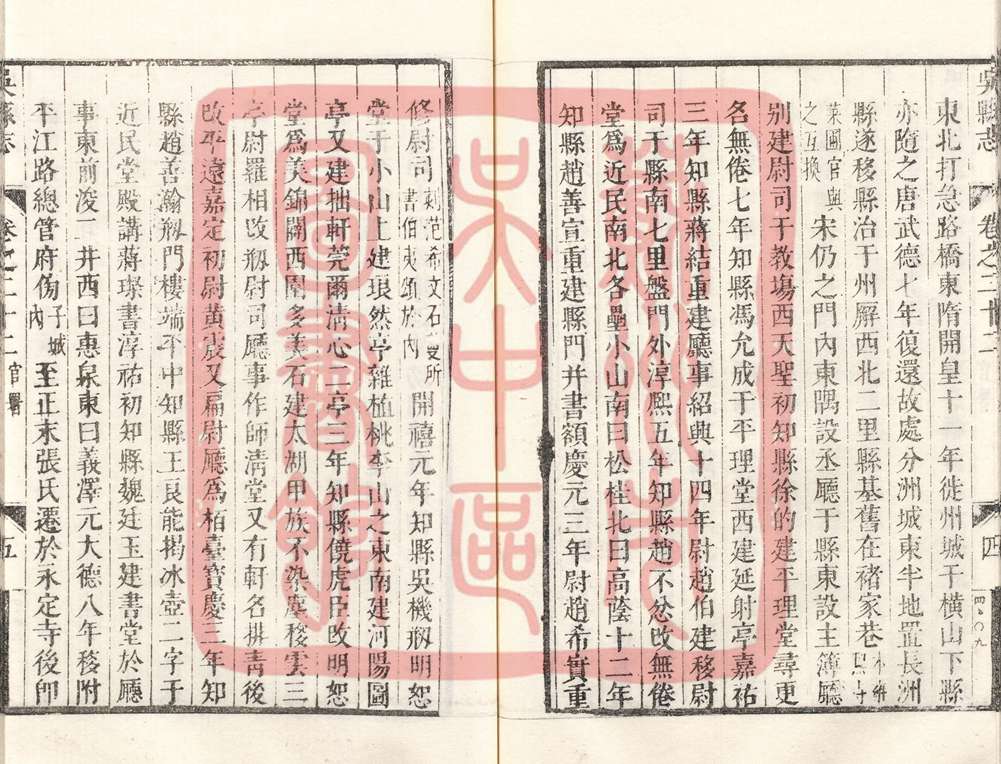 吳縣志
卷之二十二
四
四〇〇九
東北打急路橋東隋開皇十一年徙州城于橫山下縣
亦隨之唐武德七年復還故處分洲城東半地置長洲
縣遂移縣治于州廨西北二里縣基舊在褚家巷
菜圃官與
之互換
宋仍之門內東隅設丞廳于縣東設主簿廳
別建尉司于教塲西天聖初知縣徐的建平理堂尋更
名無倦七年知縣馮允成于平理堂西建延射亭嘉祐
三年知縣蔣結重建廳事紹興十四年尉趙伯建移尉
司于縣南七里盤門外淳熙五年知縣趙不忿改無倦
堂爲近民南北各壘小山南曰松桂北曰高蔭十二年
知縣趙善宣重建縣門并書額慶元二年尉趙希實重
修尉司
刺范希文石曼所
書伯夷頌於內
開禧元年知縣吳機剏明恕
堂于小山上建琅然亭雜植桃李山之東南建河陽圖
亭又建拙軒莞爾清心二亭三年知縣饒虎臣改明恕
堂爲美錦闢西圃多美石建太湖甲族不染塵移雲三
亭尉羅相改剏尉司廳事作師清堂又有軒名排青後
改平遠嘉定初尉黃震又扁尉廳爲栢臺寶慶二年知
縣趙善瀚剏門樓端平中知縣王良能揭冰壺二字于
近民堂殿講蔣璨書淳祐初知縣魏廷玉建書堂於廳
事東前浚二井西曰惠泉東曰義澤元大德八年移附
平江路總管府傍
子城
內
至正末張氏遷於永定寺後卽
吳縣志
卷之二十二
官署
五
蘇州市
吳中區
圖書館